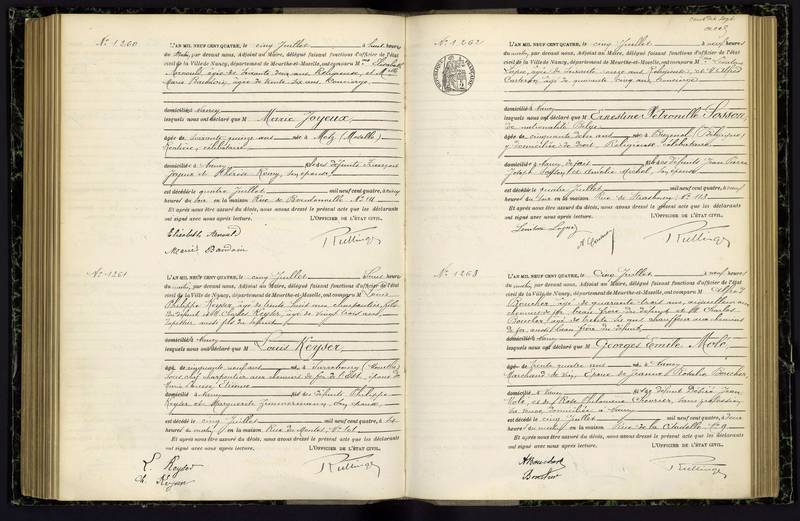 N° 1260
L'AN MIL NEUF CENT QUATRE, le cinq Juillet à huit heures
du matin, par devant nous, Adjoint au Maire, délégué faisant fonctions d'officier de l'état
civil de la Ville de Nancy, département de Meurthe-et-Moselle, ont comparu M Elisabeth
âgée de soixante deux ans Religieuse, et M
Marie âgée de trente six ans Concierge
domiciliés à Nancy
lesquels nous ont déclaré que M Marie Joyeux
âgée de soixante quinze ans née à Metz (Moselle)
Rentière, célibataire
domiciliée à Nancy fille des défunts François
Joyeux et Thérèse Remy, son épouse
est décédée le quatre Juillet mil neuf cent quatre, à
heures du soir en la maison Rue de Boudonville N° 14
Et après nous être assuré du décès, nous avons dressé le présent acte que les déclarants
ont signé avec nous après lecture. L'OFFICIER DE L'ÉTAT CIVIL,
Elisabeth
Marie
N° 1261
L'AN MIL NEUF CENT QUATRE, le cinq Juillet à huit heures
du matin, par devant nous, Adjoint au Maire, délégué faisant fonctions d'officier de l'état
civil de la Ville de Nancy, département de Meurthe-et-Moselle, ont comparu M Louis
Philippe Keyser, âgé de trente huit ans charpentier, fils
du défunt et M. Charles Keyser, âgé de vingt trois ans
tapissier aussi fils du défunt
domiciliés à Nancy
lesquels nous ont déclaré que M Louis Keyser
âgé de cinquante neuf ans né à Sarrebourg
charpentier aux chemins de fer de l'Est, époux de
Marie Thérèse
domicilié à Nancy fils des défunts Philippe
Keyser et Marguerite Zimmermann, son épouse
est décédé le cinq Juillet mil neuf cent quatre, à six
heures du matin en la maison Rue de
Et après nous être assuré du décès, nous avons dressé le présent acte que les déclarants
ont signé avec nous après lecture. L'OFFICIER DE L'ÉTAT CIVIL,
L. Keyser
Ch. Keyser
N° 1262
L'AN MIL NEUF CENT QUATRE, le cinq Juillet à neuf heures
du matin, par devant nous, Adjoint au Maire, délégué faisant fonctions d'officier de l'état
civil de la Ville de Nancy, département de Meurthe-et-Moselle, ont comparu M
âgée de soixante ans Religieuse, et M. Alfred
âgé de quarante cinq ans concierge
domiciliés à Nancy
lesquels nous ont déclaré que M Ernestine Pétronille Sosson
de nationalité Belge
âgée de cinquante deux ans née à (Belgique)
y domiciliée de droit, Religieuse, célibataire
domiciliée à Nancy de fait fille des défunts Jean Pierre
Joseph et Amélie Michel, son épouse
est décédée le quatre Juillet mil neuf cent quatre, à neuf
heures du soir en la maison Rue de Strasbourg, N° 113
Et après nous être assuré du décès, nous avons dressé le présent acte que les déclarants
ont signé avec nous après lecture. L'OFFICIER DE L'ÉTAT CIVIL,
N° 1263
L'AN MIL NEUF CENT QUATRE, le cinq Juillet à neuf heures
du matin, par devant nous, Adjoint au Maire, délégué faisant fonctions d'officier de l'état
civil de la Ville de Nancy, département de Meurthe-et-Moselle, ont comparu M Alfred
Boucher âgé de quarante trois ans, aiguilleur aux
chemins de fer, beau frère du défunt et M. Charles
Boucher âgé de trente ans, chauffeur aux chemins
de fer aussi beau frère du défunt
domiciliés à Nancy
lesquels nous ont déclaré que M Georges Emile Molé
âgé de trente quatre ans né à Nancy
Marchand de vin, Epoux de Jeanne Rosalie Boucher
domicilié à Nancy fils du défunt Désiré Jean
Molé, et de Rose Philomène sans profession
sa veuve domiciliée à Nancy
est décédé le cinq Juillet mil neuf cent quatre, à deux
heures du matin en la maison Rue de la Citadelle N° 9
Et après nous être assuré du décès, nous avons dressé le présent acte que les déclarants
ont signé avec nous après lecture. L'OFFICIER DE L'ÉTAT CIVIL,
A Boucher
Boucher